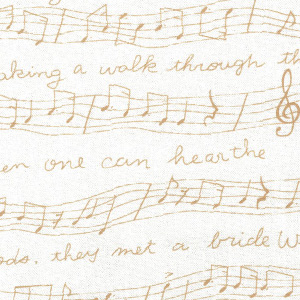 aking a walk through th
en one can hearthe
ods. they met a bride W